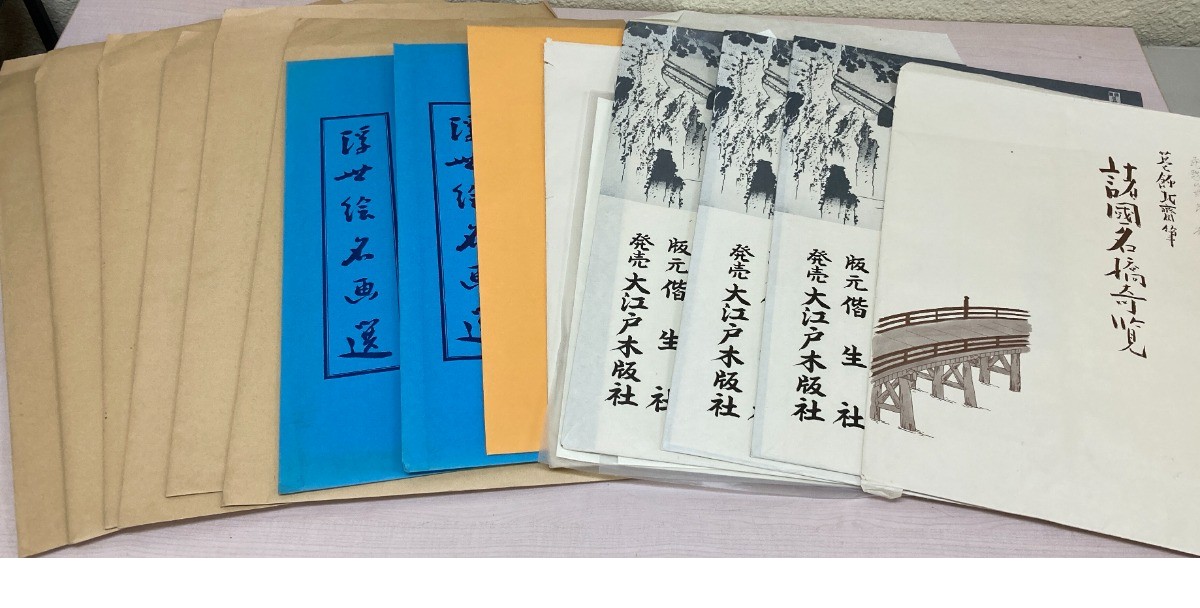 浮世絵名画選
浮世絵名画選
版元偕生社
発売大江戸木版社
発売大江戸木版社
版元偕生社
発売大江戸木版社
前北斎筆
諸國名橋奇覧